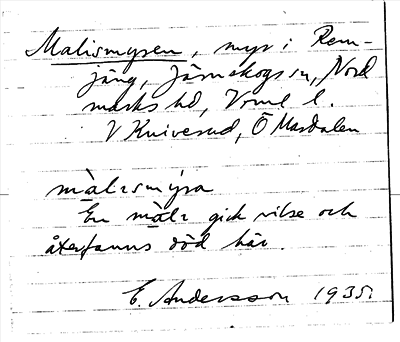 Malismyren, myr i Rem-
jäng, Järnskogs sn, Nord
marks hd, Vrml l.
V Kniverud, Ö Mardalen
màlɩsmýra
En màlɩ gick vilse och
återfanns död här.
E. Andersson 1935.